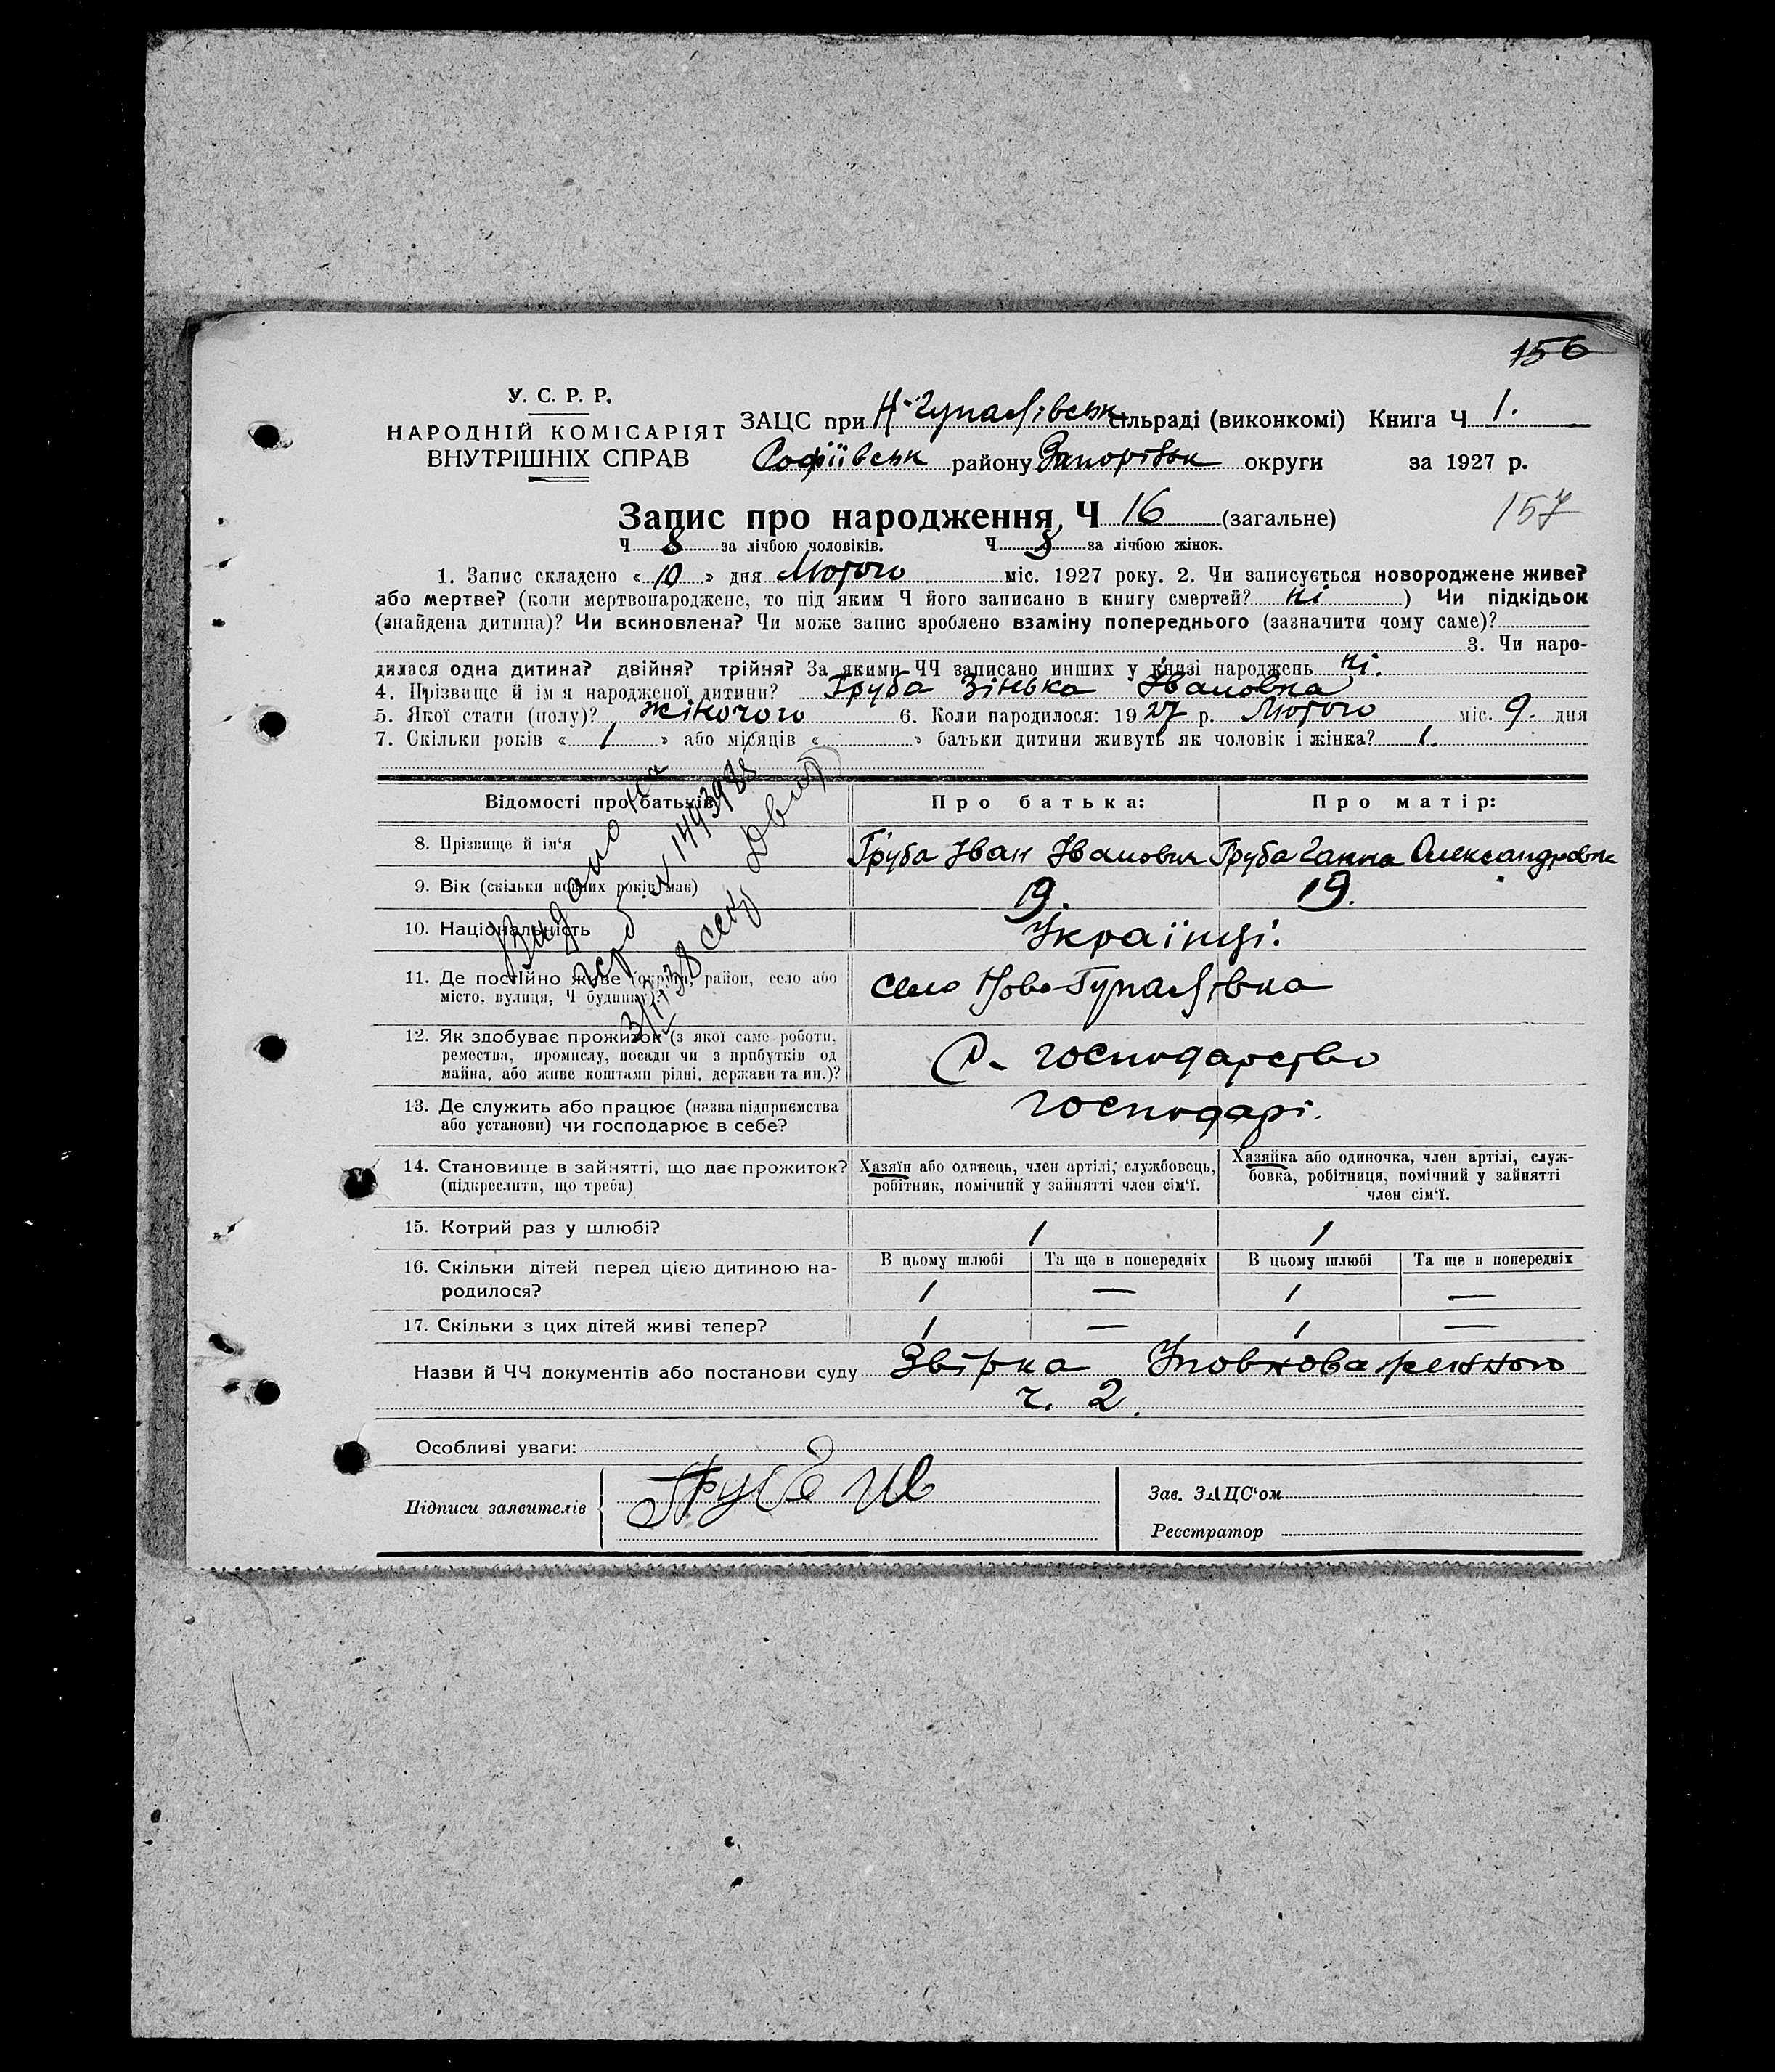 156
У. С. Р. Р.
НАРОДНІЙ КОМІСАРІЯТ
ВНУТРІШНІХ СПРАВ
ЗАЦС при Н-Гупалівськ сільраді (виконкомі) Книга Ч 1.
Софіївськ району Запорізьк округи за 1927 р.
157
Запис про народження, Ч 16 (загальне)
Ч 8 за лічбою чоловіків. Ч 8 за лічбою жінок.
1. Запис складено « 10 » дня Лютого міс. 1927 року. 2. Чи записується новороджене живе?
або мертве? (коли мертвонароджене, то під яким Ч його записано в книгу смертей? ні ) Чи підкідьок
(знайдена дитина)? Чи всиновлена? Чи може запис зроблено взаміну попереднього (зазначити чому саме)?
3. Чи наро-
дилася одна дитина? двійня? трійня? За якими ЧЧ записано инших у книзі народжень ні.
4. Прізвище й ім'я народженої дитини? Груба Зінька Івановна
5. Якої стати (полу)? жіночого 6. Коли народилося: 1927 р. Лютого міс. 9. дня
7. Скільки років « 1 » або місяців « » батьки дитини живуть як чоловік і жінка? 1.
Відомості про батьків Про батька: Про матір:
8. Прізвище й ім'я Груба Іван Іванович Груба Ганна Олександровна
9. Вік (скільки повних років має) 19. 19.
10. Національність Українці.
11. Де постійно живе (округа, район, село або
місто, вулиця, Ч будинку)? село Ново-Гупалівка
12. Як здобуває прожиток (з якої саме роботи,
ремества, промислу, посади чи з прибутків од
майна, або живе коштами рідні, держави та ин.)? господарство
13. Де служить або працює (назва підприємства
або установи) чи господарює в себе? господарі.
14. Становище в зайнятті, що дає прожиток?
(підкреслити, що треба)
Хазяїн або одинець, член артілі, службовець,
робітник, помічний у зайнятті член сім'ї.
Хазяйка або одиночка, член артілі, служ-
бовка, робітниця, помічний у зайнятті
член сім'ї.
15. Котрий раз у шлюбі? 1 1
16. Скільки дітей перед цією дитиною на-
родилося?
В цьому шлюбі Та ще в попередніх В цьому шлюбі Та ще в попередніх
1 — 1 —
17. Скільки з цих дітей живі тепер? 1 — 1 —
Видано на
герб № 149398
Назви й ЧЧ документів або постанови суду Звірка Уповноваженого
ч. 2.
Особливі уваги:
Підписи заявителів Груба Ив
Зав. ЗАЦС'ом
Реєстратор